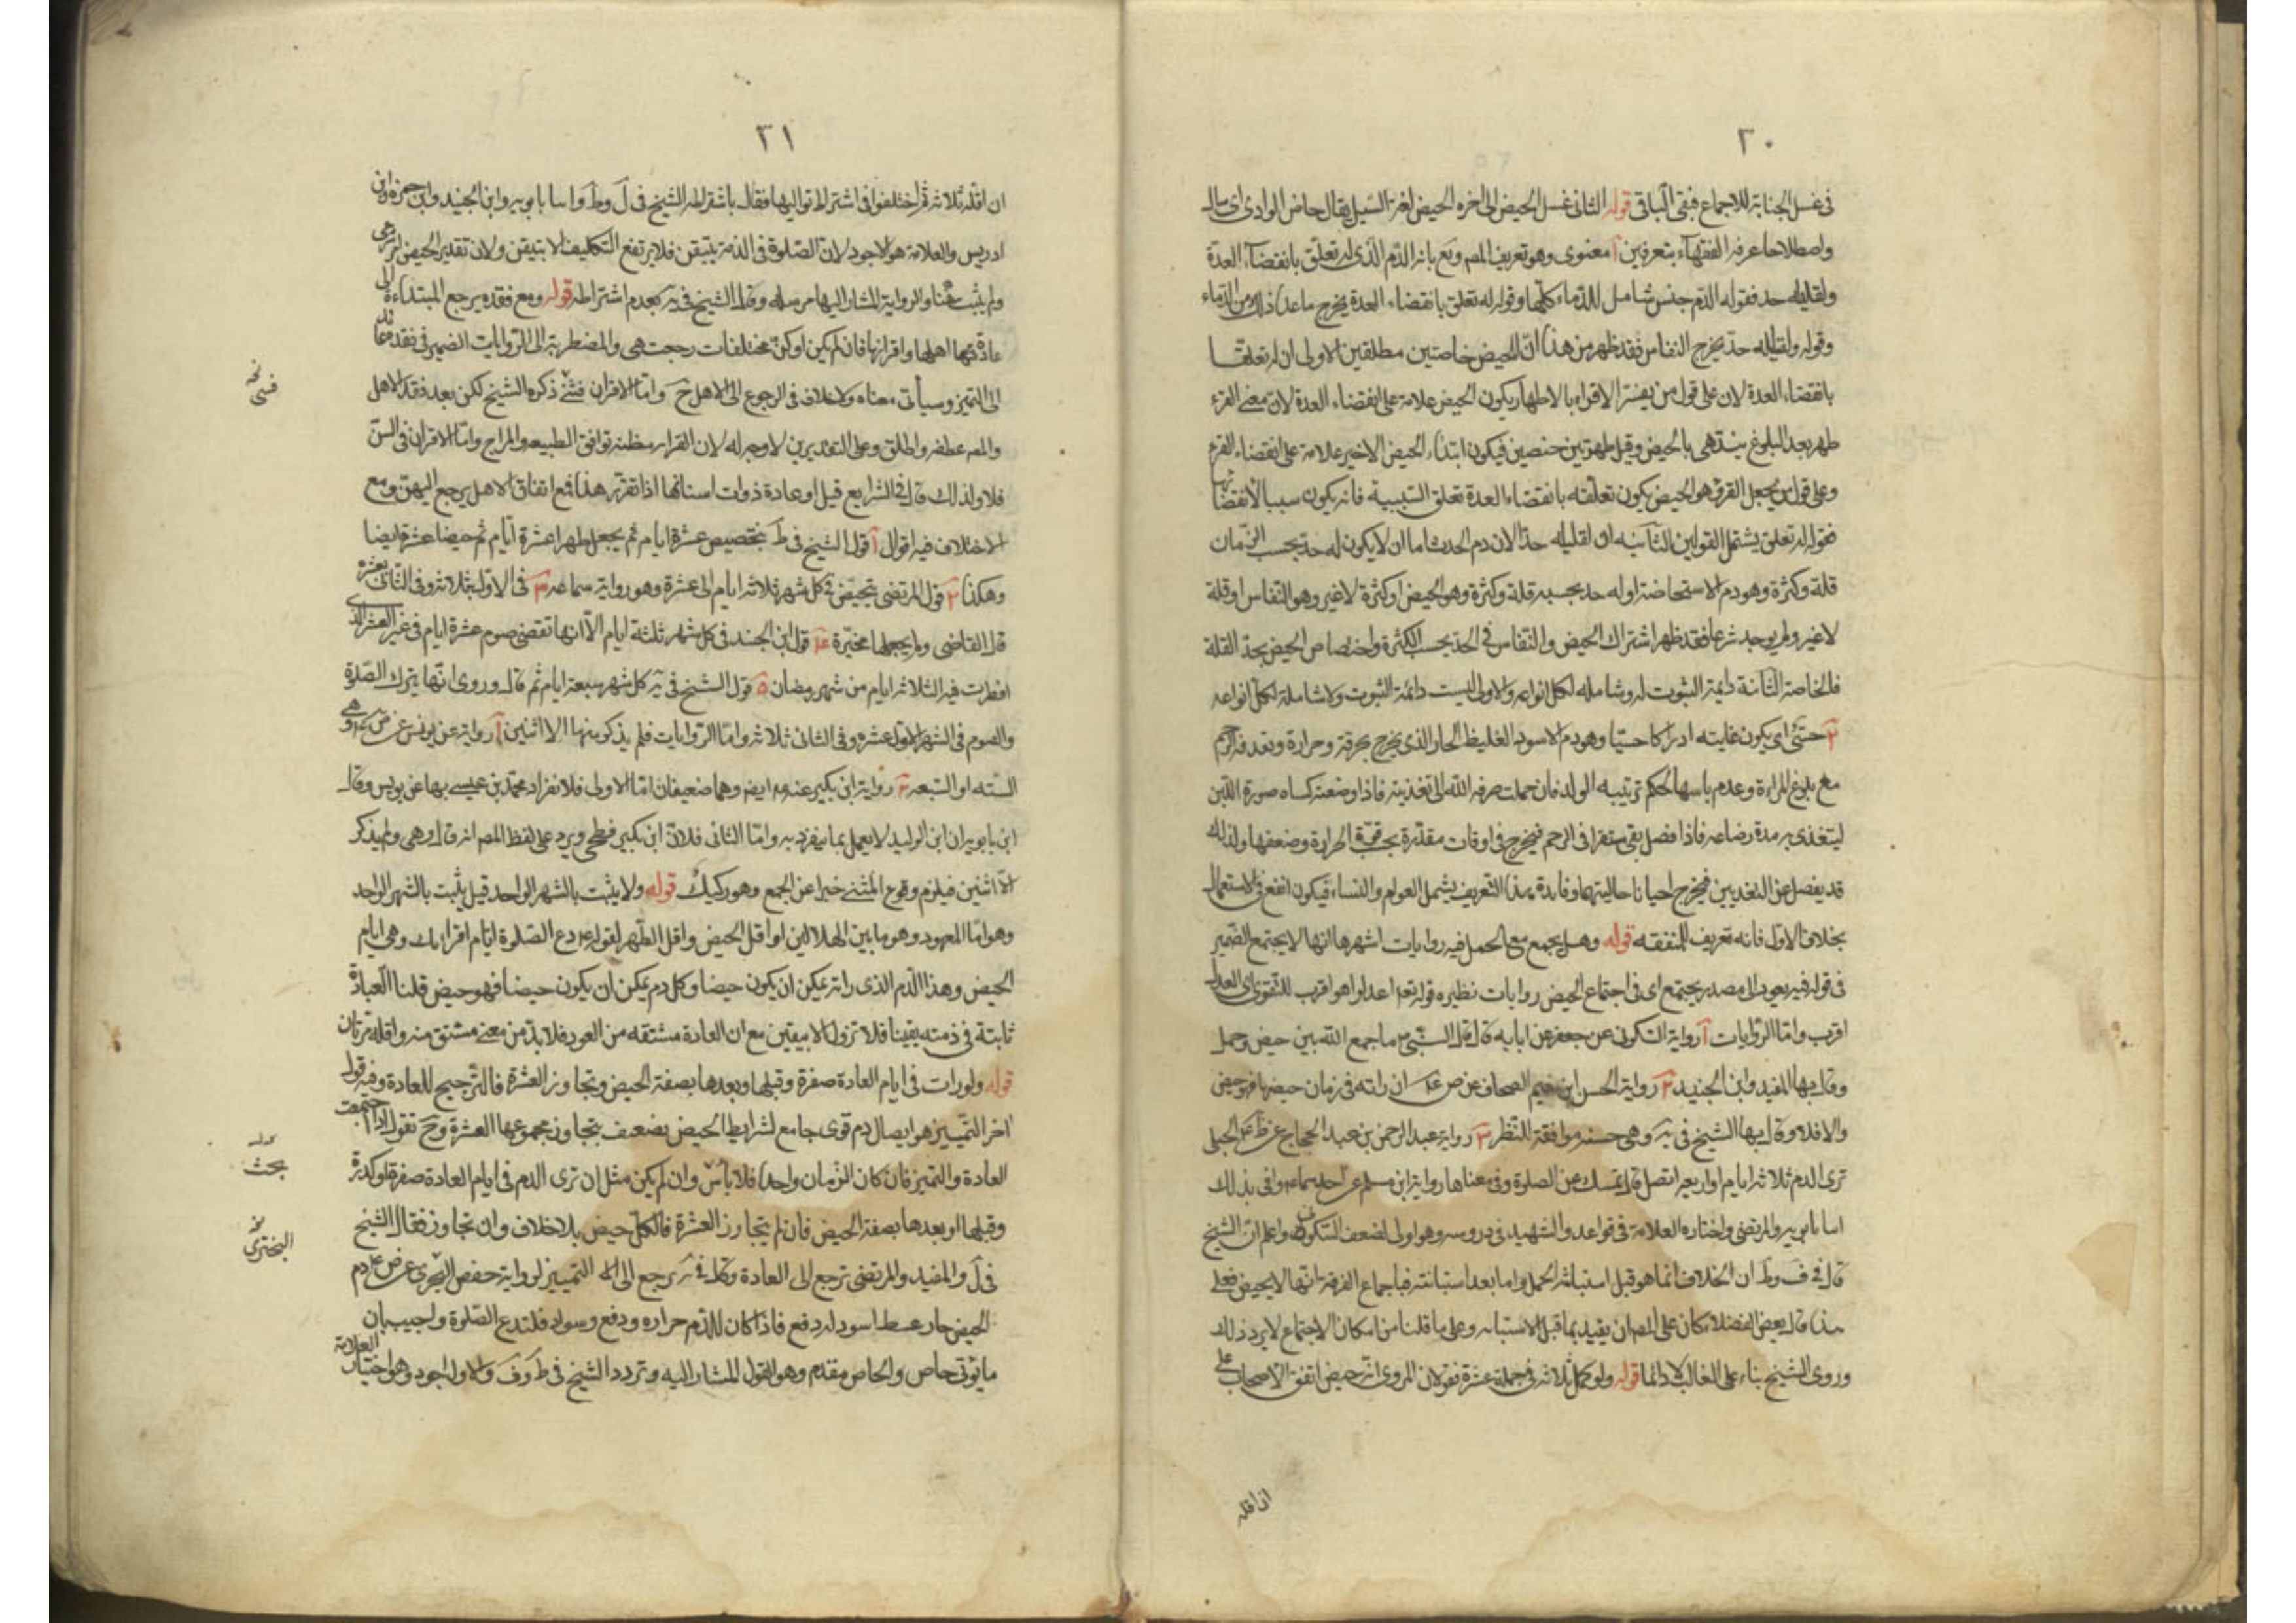 ٣٠
في غسل الجنابة للاجماع فبقى الباقي قوله الثاني غسل الحيض الى اخره الحيض لغة السيل يقال حاض الوادي اى سال
واصطلاحا عرفه الفقهاء بتعرفين آ معنوى وهو تعريف المص وقع بانه الدم الذى له تعلق بانقضاء العدة
ولقليله حد فقوله الدم جنس شامل للدماء كلها وقوله له تعلق بانقضاء العدة يخرج ماعدا ذلك من الدماء
وقوله ولقليله حد يخرج النفاس فقد ظهر من هذا ان للحيض خاصتين مطلقين الاولى ان له تعلقا
بانقضاء العدة لان على قول من يفسر الاقراء بالاطهار يكون الحيض علامة على انقضاء العدة لان معنى القرء
طهر بعد البلوغ ينتهى بالحيض وقيل طهر بين حيضين فيكون ابتداء الحيض الاخير علامة على انقضاء القرء
وعلى قول من يجعل القرء هو الحيض يكون تعلقه بانقضاء العدة تعلق السببية فانه يكون سببا لانقضائها
فقوله له تعلق يشتمل القولين الثانيه ان لقليله حدا لان دم الحدث اما ان لا يكون له حد بحسب الزمان
قلة وكثرة وهو دم الاستحاضة او له حد بحسبه قلة وكثرة وهو الحيض او كثرة لاغير وهو النفاس او قلة
لاغير ولم يوجد شرعا فقد ظهر اشتراك الحيض والنفاس في الحد بحسب الكثرة واختصاص الحيض بحد القلة
فالخاصة الثانية دائمة الثبوت له وشامله لكل انواعه والاولى ليست دائمة الثبوت ولا شاملة لكل انواعه
٢ حسّى اى يكون غايته ادراكا حسيا وهو دم الاسود الغليظ الحار الذى يخرج بحرقة وحرارة وتعدفه الرحم
مع بلوغ المراءة وعدم ياسها لحكم تربيه الولد فان حملت صرفه الله الى تغذيته فاذا وضعته كساه صورة اللبن
ليتغذى به مدة رضاعه فاذا فصل بقى مستقرا في الرحم فيخرج في اوقات مقدرة بحسب قوة الحرارة وضعفها ولذلك
قد يفصل عن التغذيين فيخرج احيانا حاليتهما وفايدة هذا التعريف يشمل العوام والنساء فيكون انفع في الاستعمال
بخلاف الاول فانه تعريف للمتفقه قوله وهل يجمع مع الحمل فيه روايات اشهرها انها لا يجتمع الضمير
في قوله فيه يعود الى مصدر يجتمع اى في اجتماع الحيض روايات نظيره قوله تعه اعدلوا هو اقرب للتقوى اى العدل
اقرب واما الروايات آ رواية السكونى عن جعفر عن ابايه قال قال النبى ص ما جمع الله بين حيض وحمل
وقال بها المفيد وابن الجنيد ٢ رواية الحسن بن نعيم الصحاف عن ص ع ان راته في زمان حيضها فهو حيض
والا فلا وقال بها الشيخ في يه وهى حسنه موافقة للنظر ٣ رواية عبد الرحمن بن عبد الحجاج عن ظ ع الحبلى
ترى الدم ثلاثه ايام او اربعه اتصل قال تمسك عن الصلوة وفى معناها رواية ابن مسلم عن احدهما ع وافى بذلك
ابنا بابويه والمرتضى واختاره العلامة في قواعده والشهيد في دروسه وهو اولى لضعف السكونى واعلم ان الشيخ
قال في ف وط ان الخلاف انما هو قبل استبانة الحمل واما بعد استبانته فباجماع الفرقة انها لا يحيض فعلى
هذا قال بعض الفضلاء كان على المص ان يقيد بما قبل الاستبانه وعلى ما قلنا من امكان الاجتماع لا يرد ذلك
وروى الشيخ بناء على الغالب لا دائما قوله ولو كمل ثلاثه في جملة عشرة فقولان المروى انه حيض اتفق الاصحاب على
ان اقله
٣١
ان اقله ثلاثه ثم اختلفوا في اشتراط تواليها فقال باشتراطه الشيخ في ل وط وابنا بابويه وابن الجنيد وابن حمزه وابن
ادريس والعلامة هو الاجود لان الصلوة في الذمة بيقين فلا يرتفع التكليف الا بتيقن ولان تقدير الحيض امر شرعى
ولم يثبت هنا والرواية المشار اليها مرسله وقال الشيخ في يه بعدم اشتراطه قوله ومع فقده يرجع المبتداءة الى
عادة نسائها اهلها واقرانها فان لم يكن او كن مختلفات رجعت هى والمضطربة الى الروايات الضمير في فقده عائد
الى التميز وسيأتى معناه ولاخلاف في الرجوع الى الاهل ح واما الاقران فشئ ذكره الشيخ لكن بعد فقد الاهل
والمص عطفه واطلق وعلى التقديرين لاوجه له لان القرابه مظنه توافق الطبيعه والمزاج واما الاقران في السن
فلا ولذلك قال في الشرايع قيل او عادة ذوات اسنانها اذا تقرر هذا فمع اتفاق الاهل يرجع اليهن ومع
الاختلاف فيه اقوال آ قول الشيخ في ط بتخصيص عشرة ايام ثم يجعل طهرا عشرة ايام ثم حيضا عشرة ايضا
وهكذا ٢ قول المرتضى تحيض في كل شهر ثلاثه ايام الى عشرة وهو رواية سماعه ٣ في الاول بثلاثه وفى الثانى بعشره
قاله القاضى ولم يجعلها مخيرة ٤ قول ابن الجنيد في كل شهر ثلثة ايام الا انها تقضى صوم عشرة ايام في غير العشر الذى
افطرت فيه الثلاثه ايام من شهر رمضان ٥ قول الشيخ في يه كل شهر سبعة ايام ثم قال وروى انها يترك الصلوة
والصوم في الشهر الاول عشره وفى الثانى ثلاثه واما الروايات فلم يذكر منها الا اثنين آ رواية عن يونس عن ص ع وهى
السته او السبعه ٢ رواية ابن بكير عنه ع ايض وهما ضعيفان اما الاولى فلانفراد محمد بن عيسى بها عن يونس وقال
ابن بابويه ان ابن الوليد لا يعمل بما ينفرد به واما الثانى فلان ابن بكير فطحى ويرد على لفظ المص انه قال وهى ولم يذكر
الا اثنين فيلزم وقوع المثنى خبرا عن الجمع وهو ركيك قوله ولا يثبت بالشهر الواحد قيل يثبت بالشهر الواحد
وهو اما المعهود وهو ما بين الهلالين او اقل الحيض واقل الطهر لقوله ع دع الصلوة ايام اقرايك وهى ايام
الحيض وهذا الدم الذى راته يمكن ان يكون حيضا وكل دم يمكن ان يكون حيضا فهو حيض قلنا العبادة
ثابتة في ذمته يقينا فلا تزول الا بيقين مع ان العادة مشتقه من العود فلابد من معنى مشتق منه واقله مرتان
قوله ولو رات في ايام العادة صفرة وقبلها وبعدها بصفة الحيض وتجاوز العشرة فالترجيح للعادة وفيه قول
اخر التمييز هو ايصال دم قوى جامع لشرايط الحيض بضعيف يتجاوز مجموعها العشرة وح نقول اذا اجتمعت
العادة والتميز فان كان الزمان واحدا فلا بأس وان لم يكن مثل ان ترى الدم في ايام العادة صفرة او كدرة
وقبلها او بعدها بصفة الحيض فان لم يتجاوز العشرة فالكل حيض بلاخلاف وان تجاوز فقال الشيخ
في ل والمفيد والمرتضى ترجع الى العادة وقال في يه يرجع الى التمييز لرواية حفص البحرى عن ص ع دم
الحيض حار عسط اسود له دفع فاذا كان للدم حراره ودفع وسواد فلتدع الصلوة واجيب بان
ما يؤتى خاص والخاص مقدم وهو القول المشار اليه وتردد الشيخ في ط وف والاول اجود وهو اختيار العلامة
نخه
بحث
نخ
البخترى